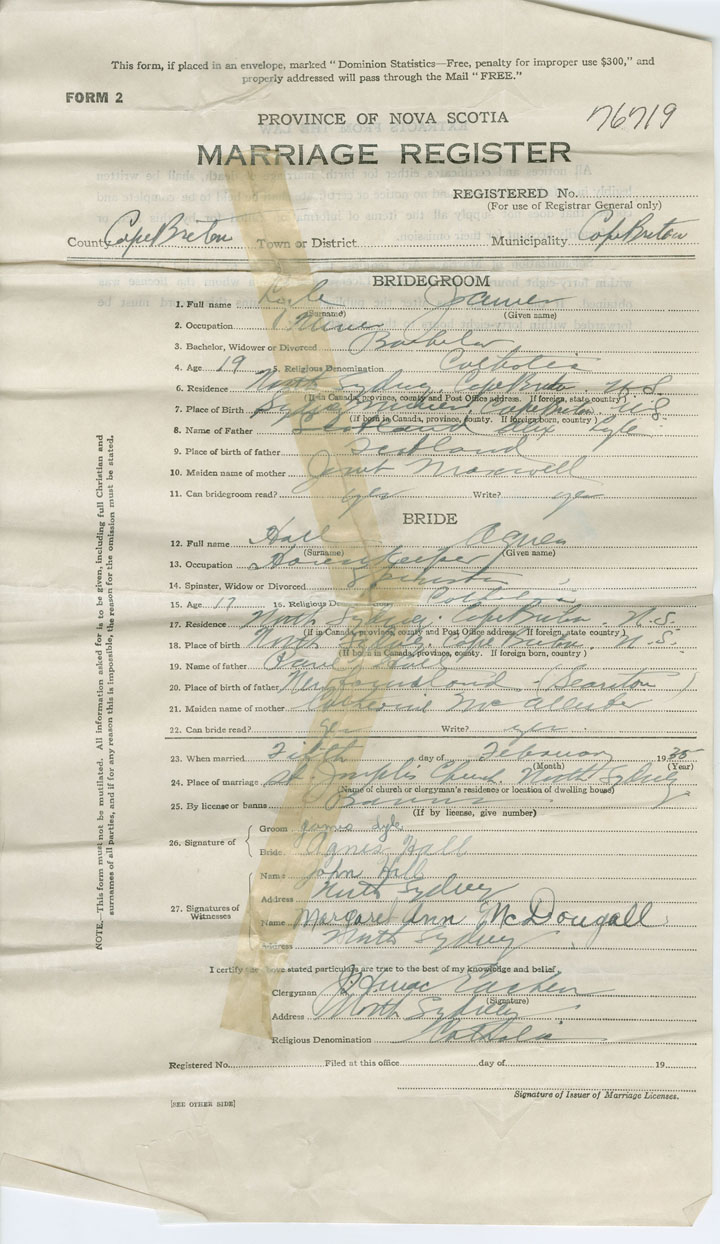 This form, if placed in an envelope, marked "Dominion Statistics—Free, penalty for improper use $300," and
properly addressed will pass through the Mail "FREE."
FORM 2
PROVINCE OF NOVA SCOTIA
76719
MARRIAGE REGISTER
REGISTERED No.
(For use of Registrar General only)
County Cape Breton Town or District Municipality Cape Breton
BRIDEGROOM
1. Full name Lyle James
(Surname) (Given name)
2. Occupation Miner
3. Bachelor, Widower or Divorced Bachelor
4. Age 19 5. Religious Denomination Catholic
6. Residence North Sydney, Cape Breton. N.S.
(If in Canada, province, county and Post Office address. If foreign, state country)
7. Place of Birth Sydney Mines, Cape Breton. N.S.
(If born in Canada, province, county. If foreign born, country)
8. Name of Father Alex Lyle
9. Place of birth of father Scotland
10. Maiden name of mother Janet Maxwell
11. Can bridegroom read? yes Write? yes
BRIDE
12. Full name Hall Agnes
(Surname) (Given name)
13. Occupation Housekeeper
14. Spinster, Widow or Divorced Spinster
15. Age 17 16. Religious Denomination Catholic
17. Residence North Sydney. Cape Breton. N.S.
(If in Canada, province, county and Post Office address. If foreign, state country)
18. Place of birth North Sydney. Cape Breton. N.S.
(If born in Canada, province, county. If foreign born, country)
19. Name of father Hall
20. Place of birth of father Newfoundland (Searston)
21. Maiden name of mother Catherine McAllister
22. Can bride read? yes Write? yes
23. When married Fifth day of February 1935
(Month) (Year)
24. Place of marriage St. Joseph's Church. North Sydney
(Name of church or clergyman's residence or location of dwelling house)
25. By license or banns Banns
(If by license, give number)
26. Signature of
Groom James Lyle
Bride Agnes Hall
27. Signatures of Witnesses
Name John Hall
Address North Sydney
Name Margaret Ann McDougall
Address North Sydney
I certify the above stated particulars are true to the best of my knowledge and belief.
Clergyman
(Signature)
Address North Sydney
Religious Denomination Catholic
Registered No. Filed at this office day of 19
Signature of Issuer of Marriage Licenses.
[SEE OTHER SIDE]
NOTE.—This form must not be mutilated. All information asked for is to be given, including full Christian and
surnames of all parties, and if for any reason this is impossible, the reason for the omission must be stated.